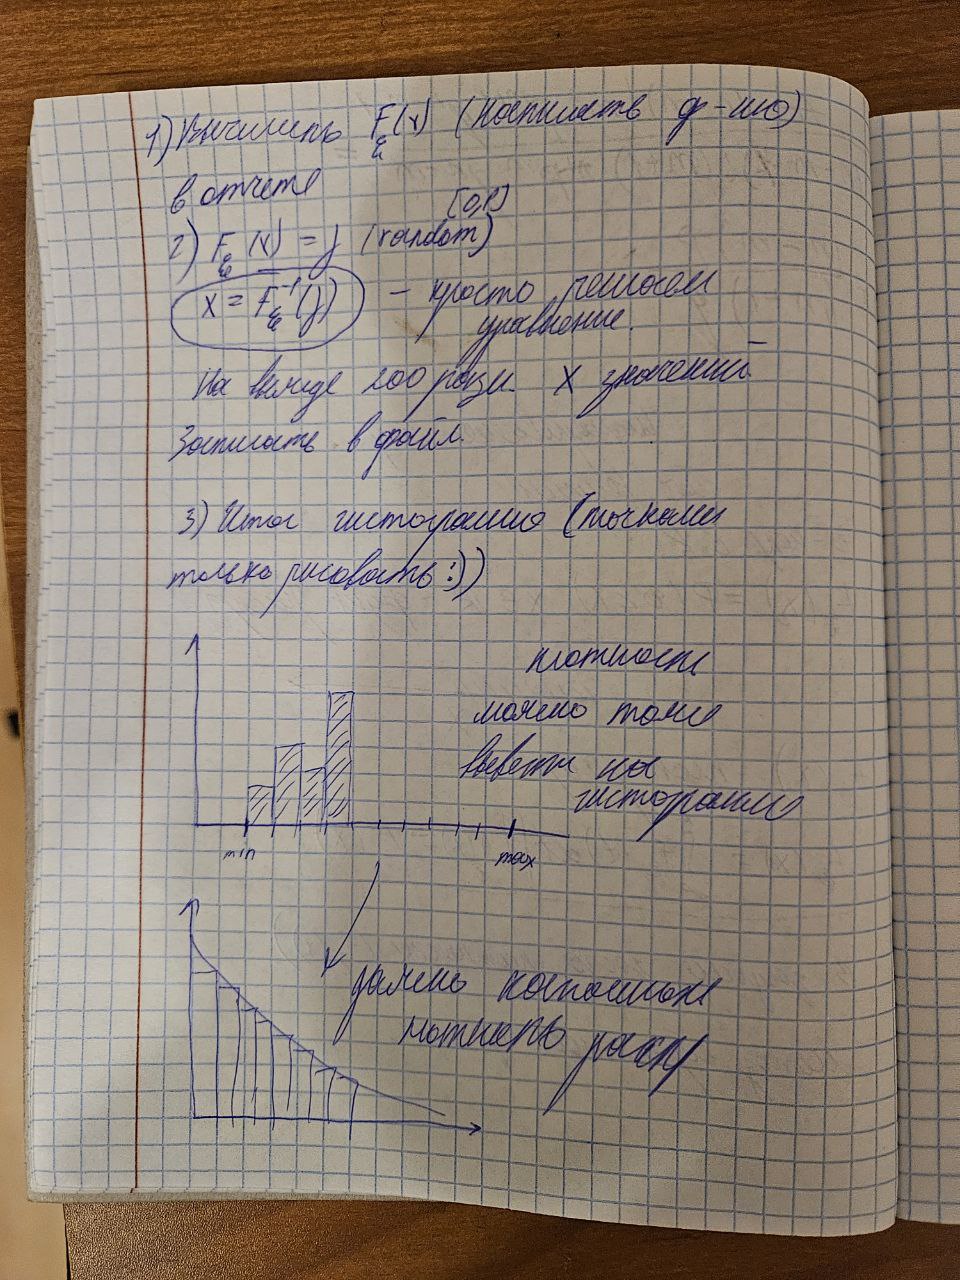 1) Вычислить F_ξ(x) (написать ф-ию)
в отчете
[0,1]
2) F_ξ(x) = y (random)
x = F_ξ^{-1}(y) - просто решаем
уравнение.
На выходе 200 X значений
Записать в файл.
3) Итог гистограмма (точками
только рисовать :))
плотность
можно тоже
вывести на
гистограмму
min
max
должно
плотность распр